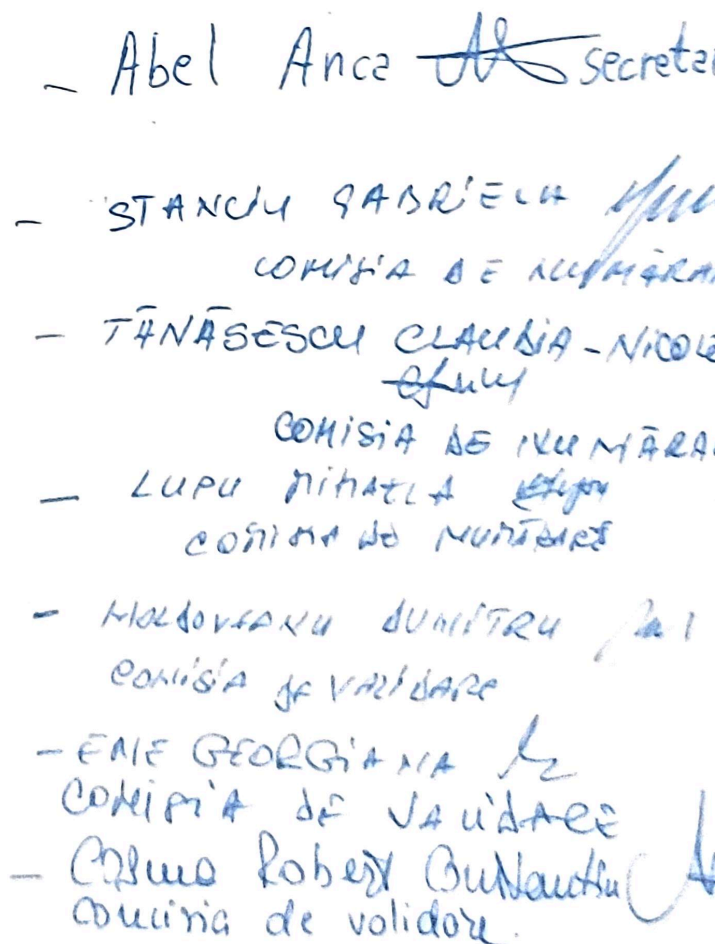 - Abel Anca secretar
- STANCIU GABRIELA
COMISIA DE NUMĂRAR
- TĂNĂSESCU CLAUDIA-NICOLE
COMISIA DE NUMĂRAR
- LUPU MIHAELA
COMISIA DE NUMĂRARE
- MOLDOVEANU DUMITRU
COMISIA DE VALIDARE
- ENE GEORGIANA
COMISIA DE VALIDARE
- Cosma Robert
comisia de validare.